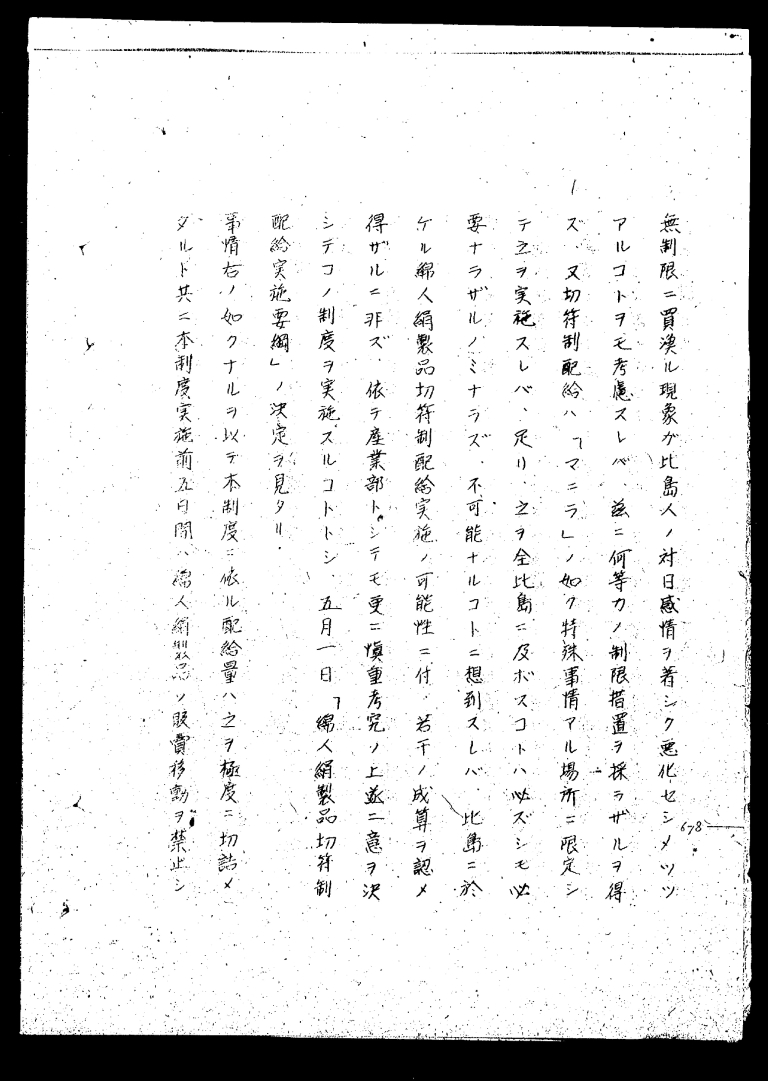 無制限ニ買漢ル現象ガ比島人ノ対日感情ヲ着シク悪化セシメツツ
アルコトヲモ考慮スレバ、茲ニ何等カノ制限措置ヲ採ラザルヲ得
ズ、又切符制配給ハ「マニラ」ノ如ク特殊事情アル場所ニ限定シ
テ之ヲ実施スレバ、足リ、之ヲ全比島ニ及ボスコトハ必ズシモ必
要ナラザルノミナラズ、不可能ナルコトニ想到スレバ、比島ニ於
ケル綿人絹製品切符制配給実施ノ可能性ニ付、若干ノ成算ヲ認メ
得ザルニ非ズ、依テ産業部トシテモ更ニ慎重考究ノ上遂ニ意ヲ決
シテコノ制度ヲ実施スルコトトシ、五月一日「綿人絹製品切符制
配給実施要綱」ノ決定ヲ見タリ、
事情右ノ如クナルヲ以テ本制度ニ依ル配給量ハ之ヲ極度ニ切詰メ
タルト共ニ本制度実施前五日間ハ綿人絹製品ノ販賣移動ヲ禁止シ
678